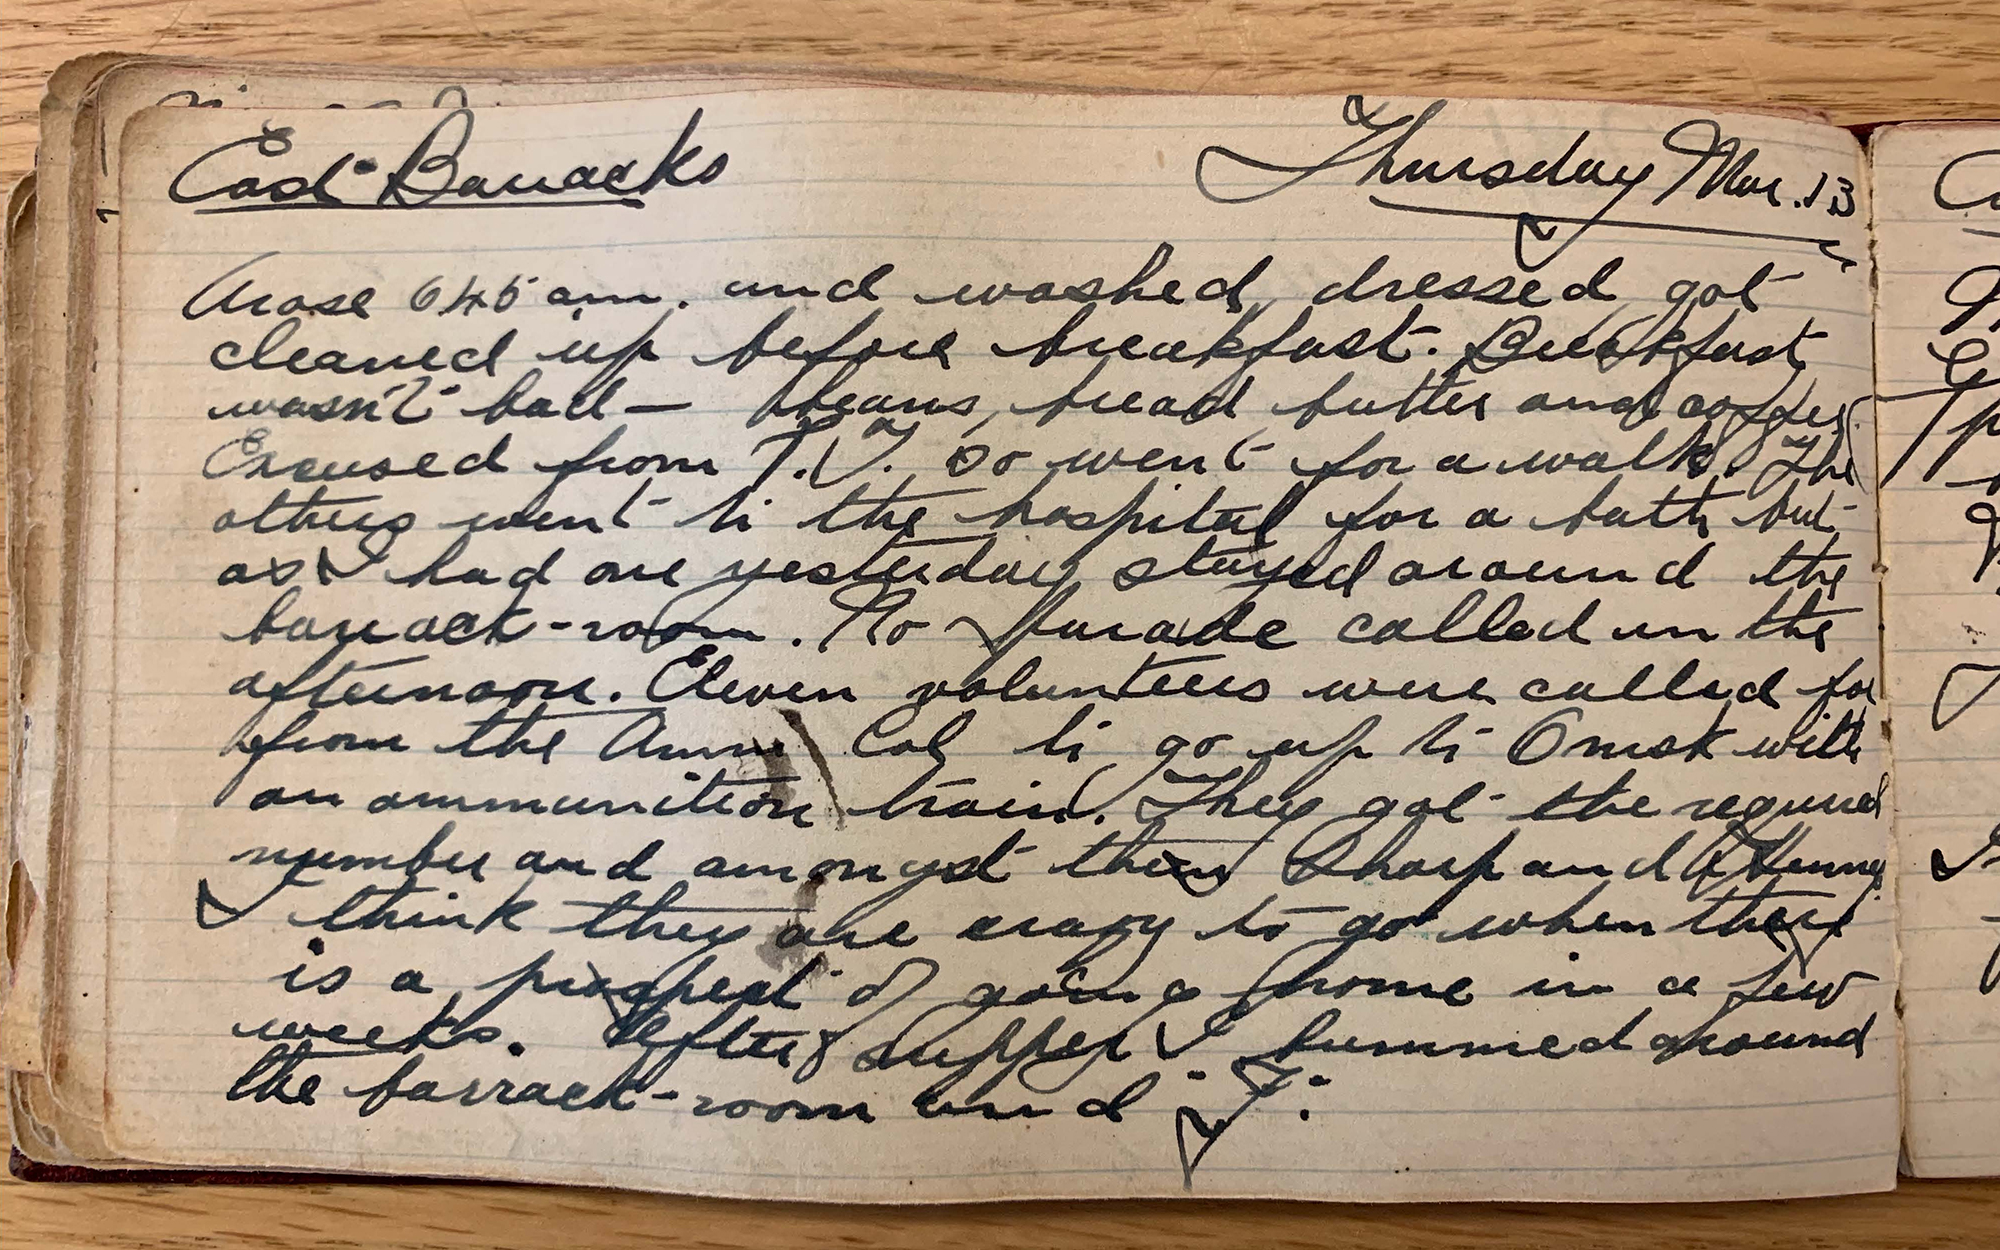 East Barracks Thursday Mar. 13
Arose 645 am. and washed, dressed, got
cleaned up before breakfast. Breakfast
wasn't bad — beans, bread butter and coffee.
Excused from P.T. so went for a walk. The
others went to the hospital for a bath but
as I had one yesterday stayed around the
barrack-room. No parade called in the
afternoon. Eleven volunteers were called for
from the Amm Col to go up to Omsk with
an ammunition train. They got the required
number and amongst them Sharp and
I think they are crazy to go when there
is a prospect of going home in a few
weeks. After supper I bummed around
the barrack-room and